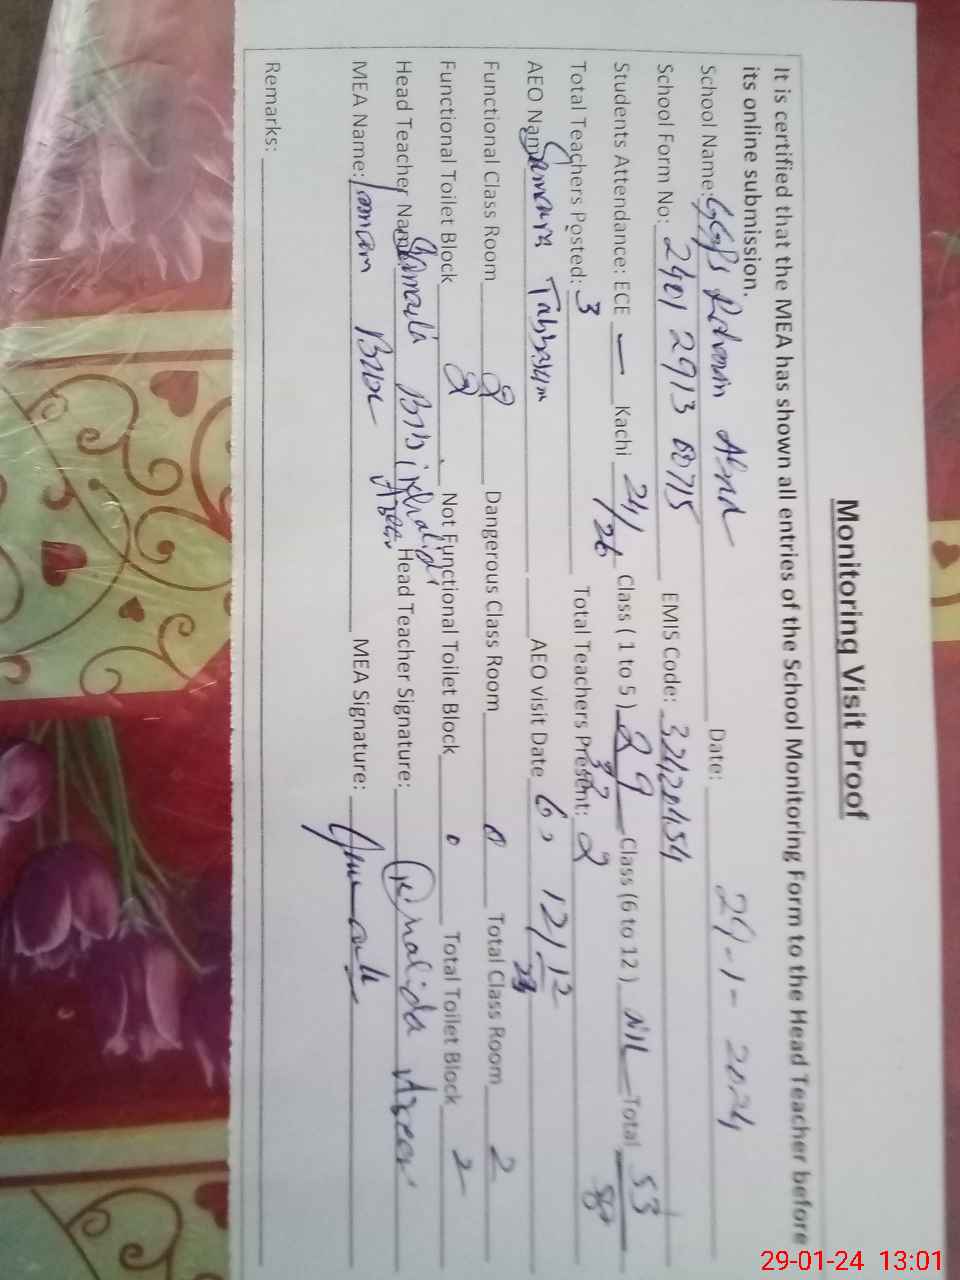 Monitoring Visit Proof
It is certified that the MEA has shown all entries of the School Monitoring Form to the Head Teacher before
its online submission.
School Name: GGPS Abad Date: 29-1-2024
School Form No: 2401 2913 60715 EMIS Code:
Students Attendance: ECE — Kachi 24/26 Class ( 1 to 5 ) 29 Class (6 to 12 ) NIL Total 53
Total Teachers Posted: 3 Total Teachers Present: 2
AEO Name Samara Tabassum AEO visit Date 12/12
Functional Class Room 2 Dangerous Class Room 0 Total Class Room 2
Functional Toilet Block 2 Not Functional Toilet Block 0 Total Toilet Block 2
Head Teacher Name: Bibi Khalida Azeer Head Teacher Signature: Khalida Azeer
MEA Name: MEA Signature:
Remarks:
29-01-24 13:01